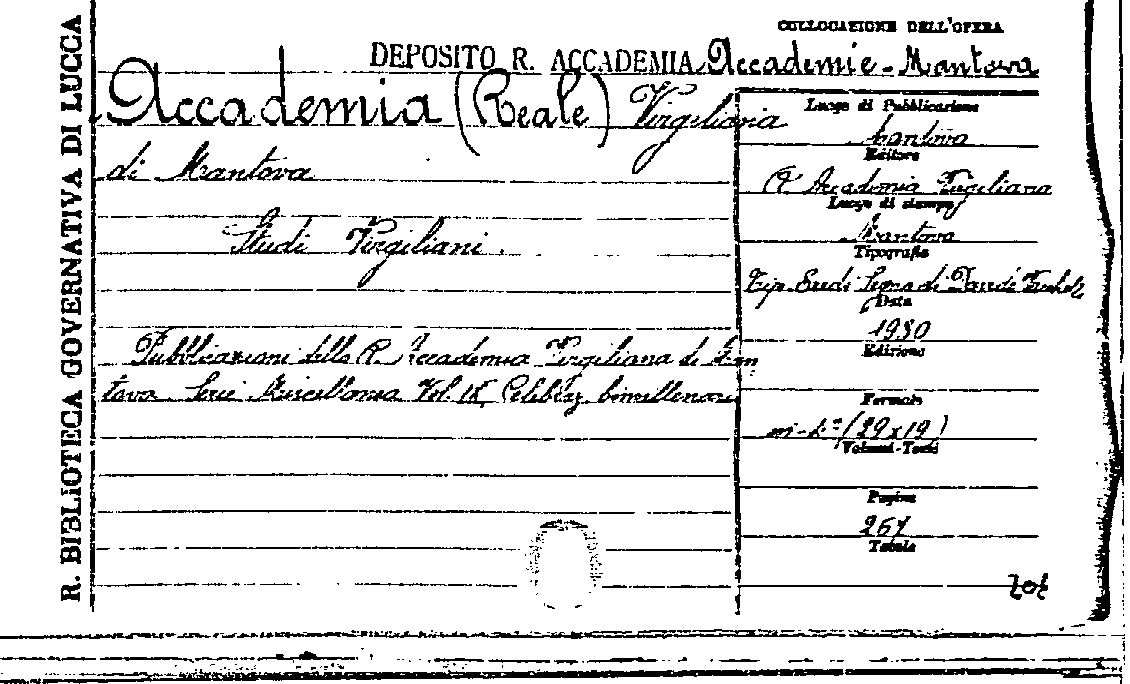 R. BIBLIOTECA GOVERNATIVA DI LUCCA
COLLOCAZIONE DELL'OPERA
DEPOSITO R. ACCADEMIA Accademie - Mantova
Accademia (Reale) Virgiliana
di Mantova
Studi Virgiliani.
Pubblicazioni della R. Accademia Virgiliana di Man
tova Serie Miscellanea Vol. IX, bimillenari
Luogo di Pubblicazione
Mantova
Editore
R. Accademia Virgiliana
Luogo di stampa
Mantova
Tipografia
Tip. di
Data
1930
Edizione
Formato
(29x19)
Volumi-Tomi
Pagine
267
Tabule